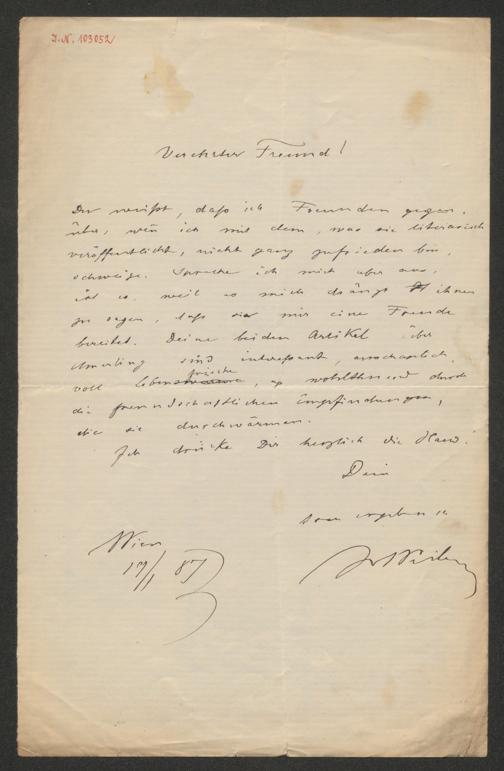 I.N. 103052
Verehrter Freund!
Du weißt, daß ich Freunden gegen-
über, wenn ich mit dem, was sie literarisch
veröffentlicht, nicht ganz zufrieden bin,
schweige. Spreche ich mich aber aus,
ist es, weil es mich drängt ihnen
zu sagen, daß sie mir eine Freude
bereitet. Deine beiden Artikel über
sind interessant, anschaulich,
voll Lebensfrische, wohlthuend durch
die freundschaftlichen Empfindungen,
die sie durchwärmen.
Ich drücke Dir herzlich die Hand.
Dein
ergebener
Wien
87